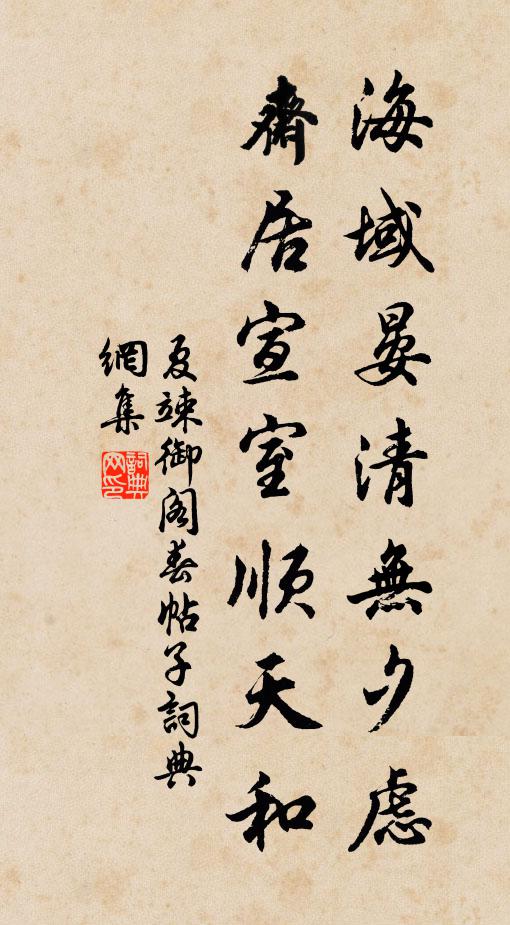 海域晏清無夕慮
齋居宣室順天和
夏竦御閣春帖子詞典
網集
詞典網印